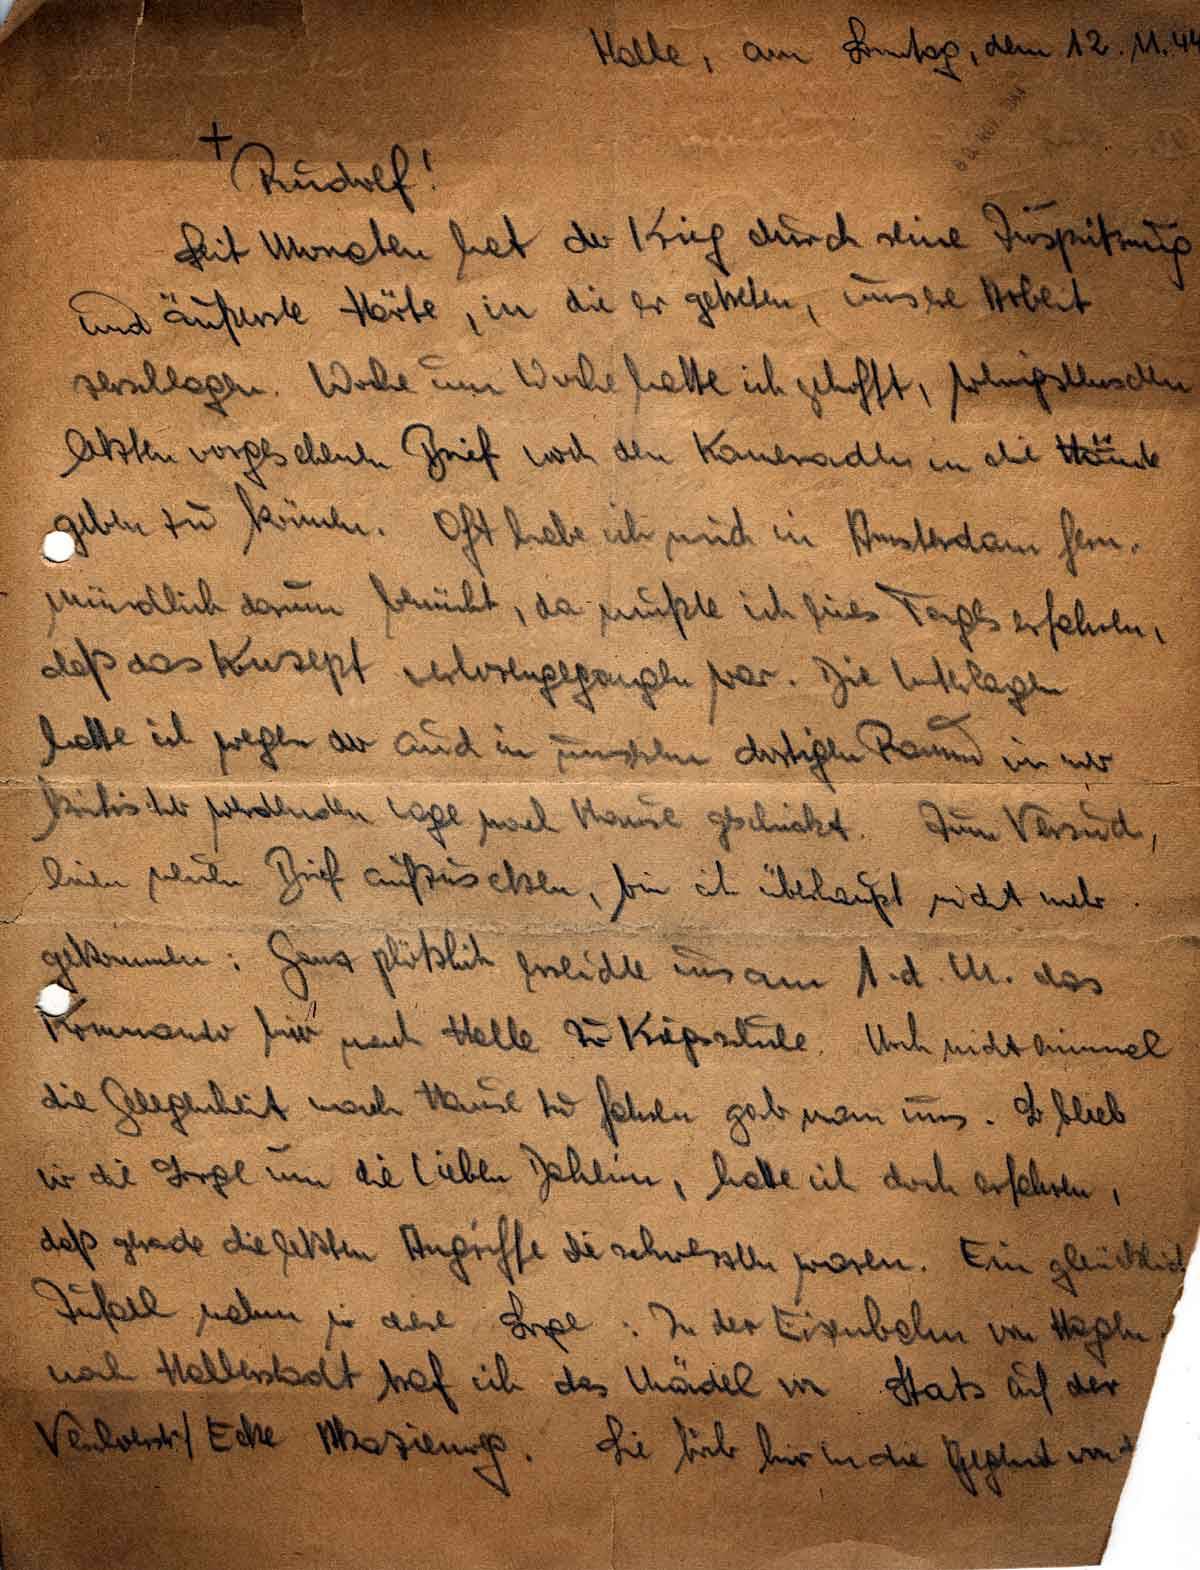 Halle, am Sonntag, dem 12.11.44
+
Rudolf!
Seit Monaten hat der Krieg durch seine Zuspitzung
und äußerste Härte, in die er getreten, unsere Arbeit
zerschlagen. Woche um Woche hatte ich gehofft, wenigstens den
letzten vorgesehenen Brief noch den Kameraden in die Hände
geben zu können. Oft habe ich mich in Amsterdam fern-
mündlich darum bemüht, da mußte ich eines Tages erfahren,
daß das Konzept verlorengegangen war. Die Unterlagen
hatte ich wegen der auch in unserem dortigen Raum immer
kritischer werdenden Lage nach Hause geschickt. Zum Versuch,
einen neuen Brief aufzusetzen, bin ich überhaupt nicht mehr
gekommen: Ganz plötzlich erreichte uns am 1. d. M. das
Kommando hier nach Halle zur Kriegsschule. Noch nicht einmal
die Gelegenheit nach Hause zu fahren gab man uns. So blieb
mir die Sorge um die Lieben Daheim, hatte ich doch erfahren,
daß gerade die letzten Angriffe die schwersten waren. Ein glücklich
Zufall nahm mir diese Sorge: In der Eisenbahn von Hagen
nach Halberstadt traf ich das Mädel von auf der
Ecke Sie hier in die Gegend von